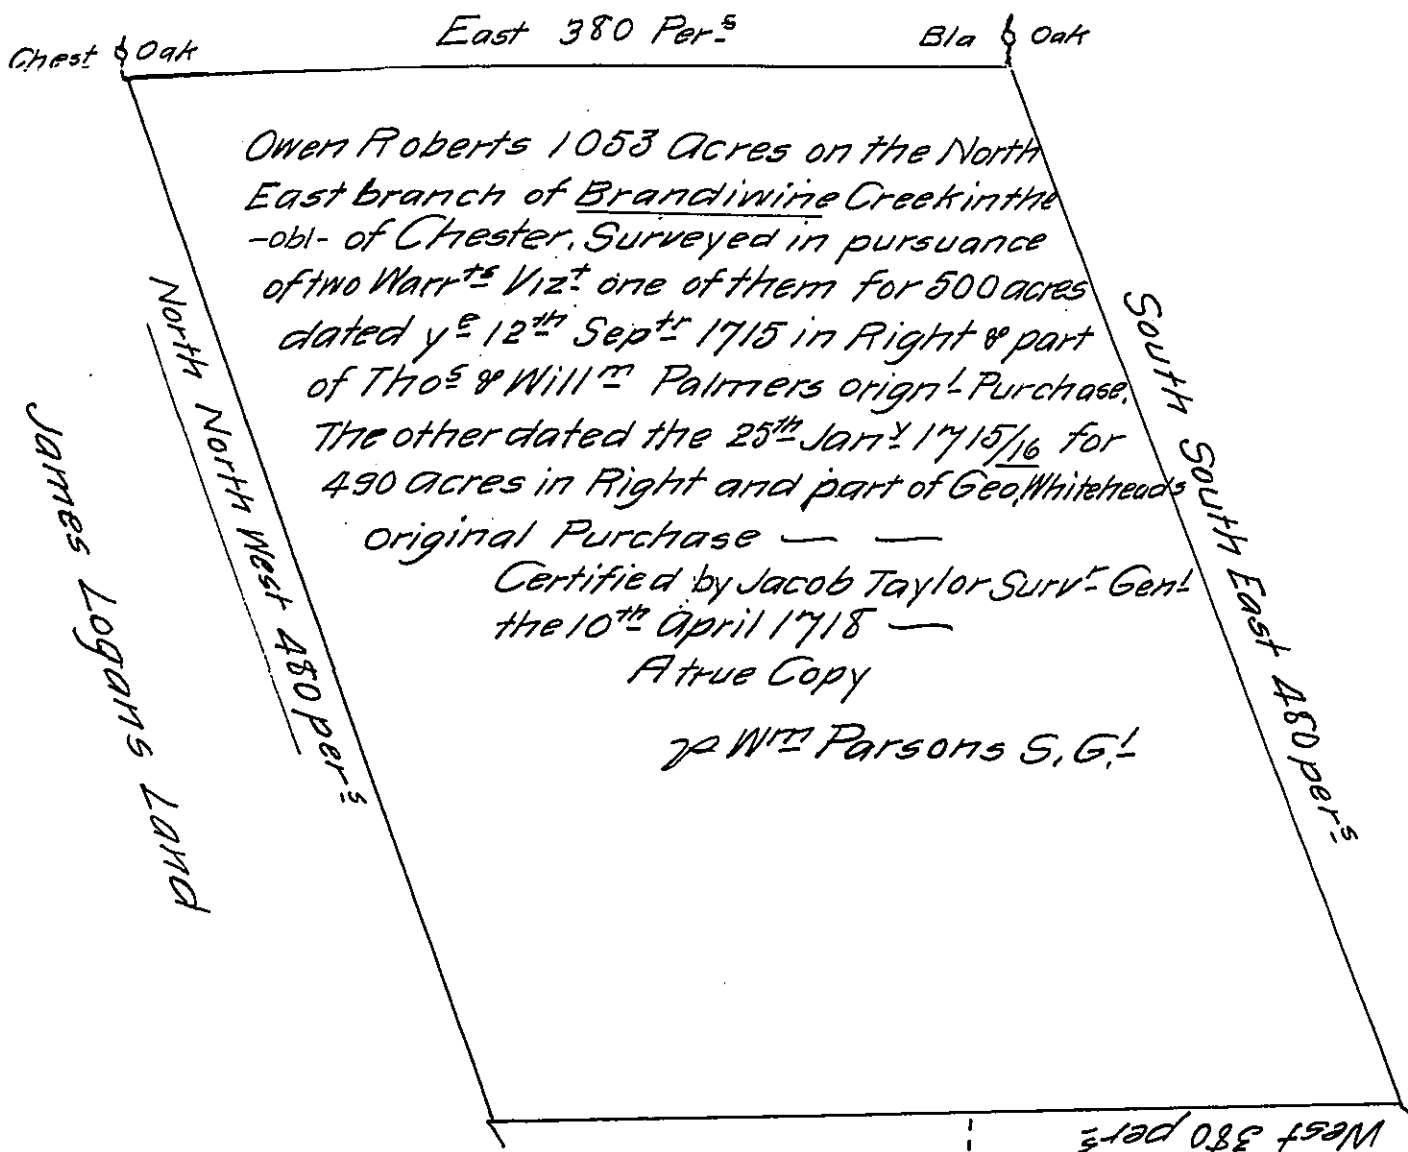 East 380 Per.s
Chest Oak
Bla Oak
Owen Roberts 1053 Acres on the North
East branch of Brandiwine Creek in the
-obl- of Chester. Surveyed in pursuance
of two Warrts Vizt one of them for 500 acres
dated ye 12th Septr 1715 in Right & part
of Thos & Willm Palmers orignl Purchase.
The other dated the 25th Jany 1715/16 for
490 acres in Right and part of Geo, Whiteheads
original Purchase — —
Certified by Jacob Taylor Survr Genl
the 10th April 1718 —
A true Copy
p Wm Parsons S. G.l
North North West 480 pers
James Logans Land
South South East 480 pers
West 380 pers